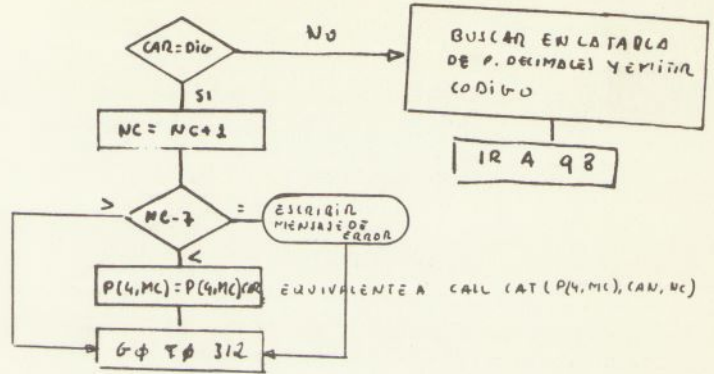 CAR=DIG
NO
SI
BUSCAR EN LA TABLA
DE P. DECIMALES Y EMITIR
CODIGO
IR A 98
NC = NC+1
>
NC-7
=
<
ESCRIBIR
MENSAJE DE
ERROR
P(4,MC)=P(4,MC)CAR
EQUIVALENTE A CALL CAT(P(4,MC),CAR,NC)
GØ TØ 312